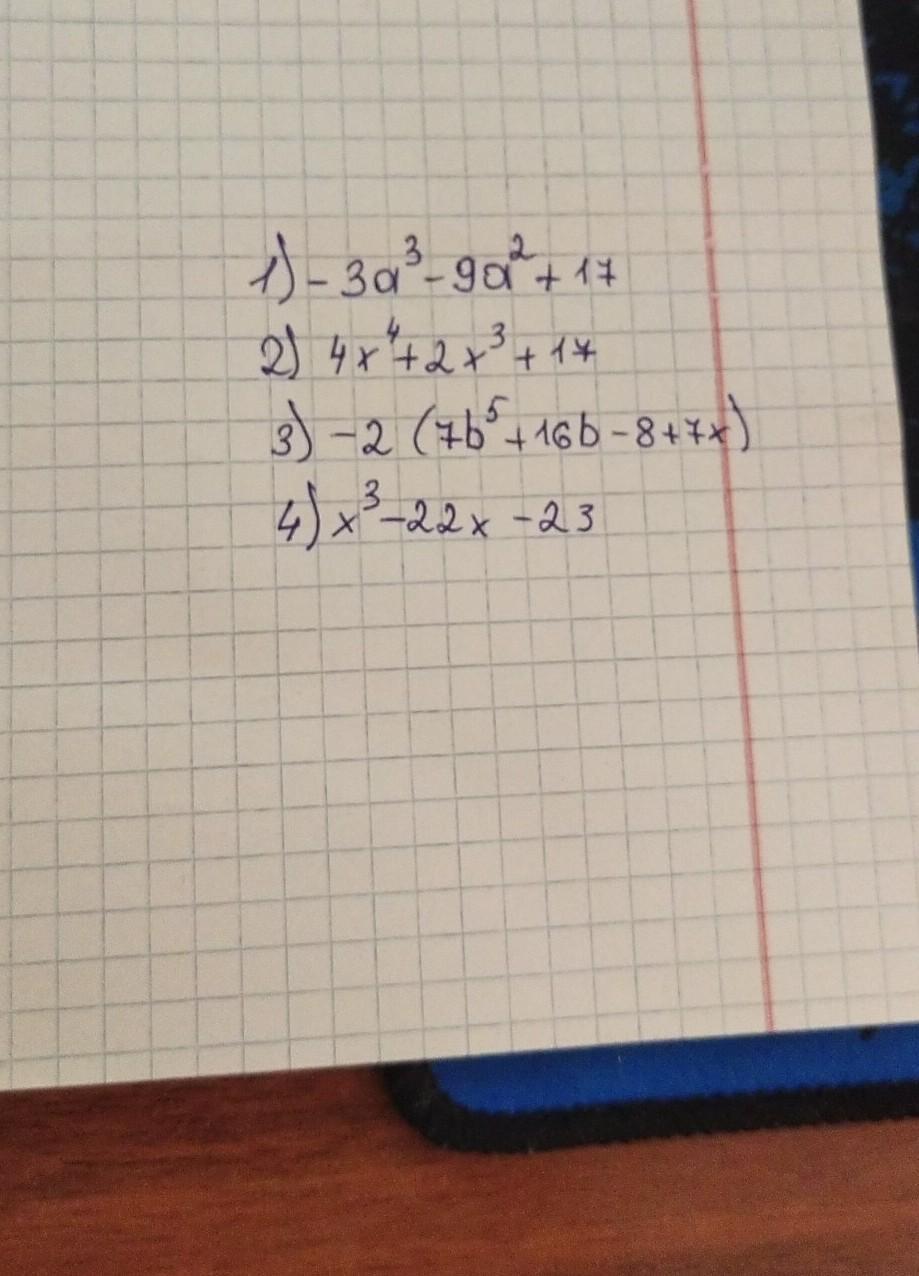 1) -3a³ - 9a² + 17
2) 4x⁴ + 2x³ + 17
3) -2 (7b⁵ + 16b - 8 + 7x)
4) x³ - 22x - 23